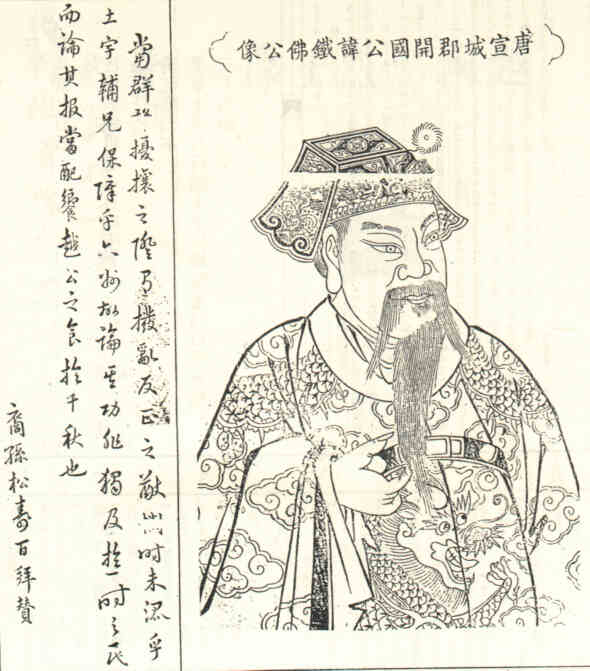 唐宣城郡開國公諱鐵佛公像
當群擾攘之際撥亂反正之猷時未混乎
土宇輔兄保障乎六州故論其功非獨及於一時之民
而論其报當配饗越公之食於千秋也
裔孫松壽百拜贊